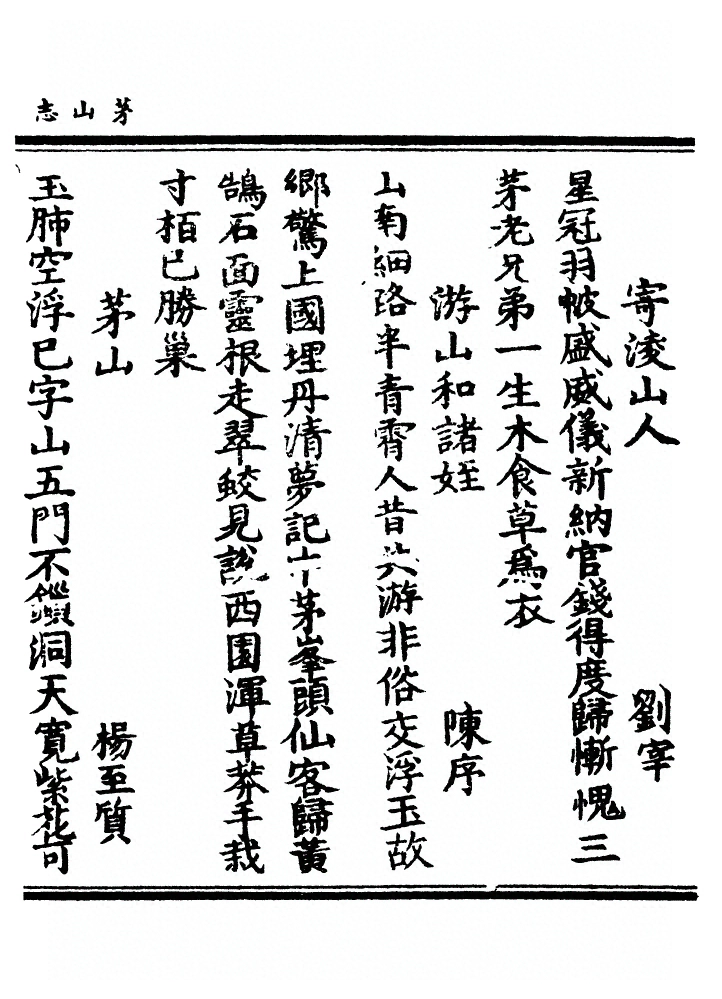 茅山志
寄淩山人　劉宰
星冠羽帔盛威儀新納官錢得度歸慚愧三
茅老兄弟一生木食草爲衣
游山和諸姪　陳序
山南細路半青霄人昔共游非俗交浮玉故
鄉驚上國埋丹清夢記中茅峯頭仙客歸黃
鵠石面靈根走翠蛟見說西園渾草莽手栽
寸栢已勝巢
茅山　楊至質
玉肺空浮巳字山五門不鎻洞天寬紫花可